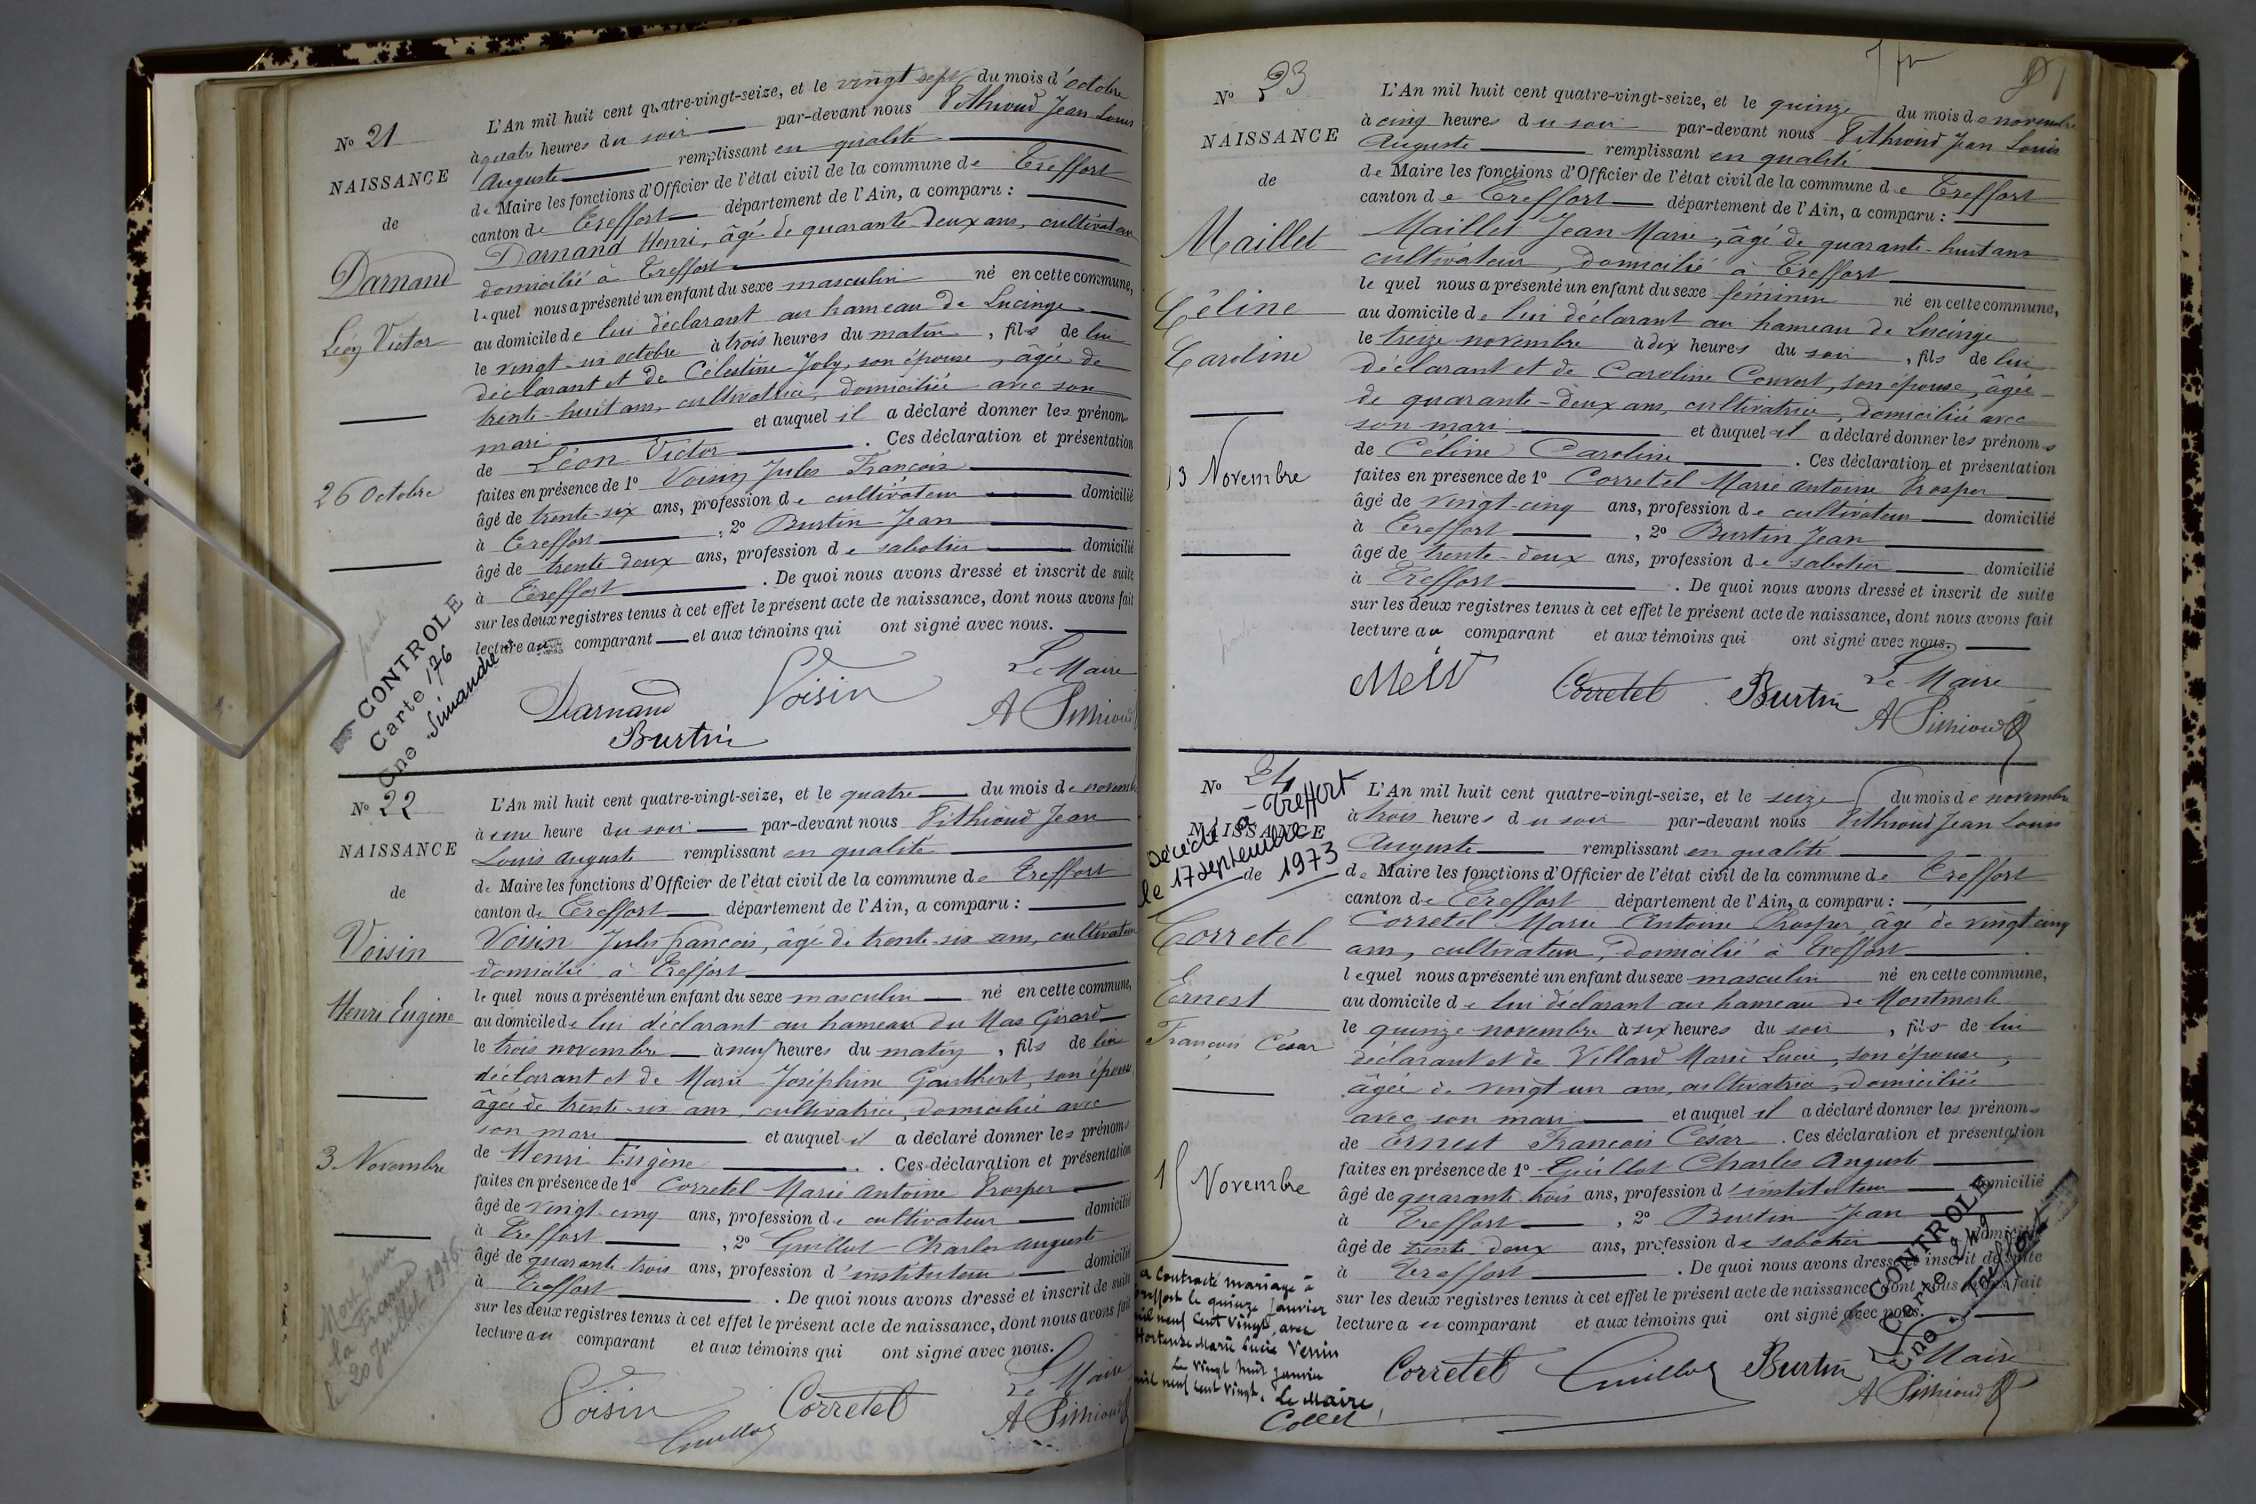 N° 21
NAISSANCE
de
Darnand
Léon Victor
26 Octobre
L'An mil huit cent quatre-vingt-seize, et le vingt sept du mois d'octobre
à quatre heures du soir par-devant nous Pithioud Jean Louis
Auguste remplissant en qualité
de Maire les fonctions d'Officier de l'état civil de la commune de Treffort
canton de Treffort département de l'Ain, a comparu :
Darnand Henri, âgé de quarante-deux ans, cultivateur
domicilié à Treffort
lequel nous a présenté un enfant du sexe masculin né en cette commune,
au domicile de lui déclarant au hameau de Lucinge
le vingt-six octobre à trois heures du matin, fils de lui
déclarant et de Célestine Joly, son épouse, âgée de
trente-huit ans, cultivatrice, domiciliée avec son
mari et auquel il a déclaré donner les prénoms
de Léon Victor. Ces déclaration et présentation
faites en présence de 1° Voisin Jules François
âgé de trente-six ans, profession de cultivateur domicilié
à Treffort, 2° Burtin Jean
âgé de trente deux ans, profession de sabotier domicilié
à Treffort. De quoi nous avons dressé et inscrit de suite
sur les deux registres tenus à cet effet le présent acte de naissance, dont nous avons fait
lecture au comparant et aux témoins qui ont signé avec nous.
CONTROLE
Carte 176
Cne Simandre
Darnand Voisin Le Maire
Burtin A Pithioud
N° 22
NAISSANCE
de
Voisin
Henri Eugène
3 Novembre
Mort pour
la France
le 20 Juillet 1916
L'An mil huit cent quatre-vingt-seize, et le quatre du mois de novembre
à une heure du soir par-devant nous Pithioud Jean
Louis Auguste remplissant en qualité
de Maire les fonctions d'Officier de l'état civil de la commune de Treffort
canton de Treffort département de l'Ain, a comparu :
Voisin Jules François, âgé de trente-six ans, cultivateur
domicilié à Treffort
lequel nous a présenté un enfant du sexe masculin né en cette commune,
au domicile de lui déclarant au hameau du Mas Girard
le trois novembre à neuf heures du matin, fils de lui
déclarant et de Marie Joséphine Gauthert, son épouse
âgée de trente-six ans, cultivatrice, domiciliée avec
son mari et auquel il a déclaré donner les prénoms
de Henri Eugène. Ces déclaration et présentation
faites en présence de 1° Corretel Marie Antoine Prosper
âgé de vingt-cinq ans, profession de cultivateur domicilié
à Treffort, 2° Guillot Charles Auguste
âgé de quarante trois ans, profession d'instituteur domicilié
à Treffort. De quoi nous avons dressé et inscrit de suite
sur les deux registres tenus à cet effet le présent acte de naissance, dont nous avons fait
lecture au comparant et aux témoins qui ont signé avec nous.
Voisin Corretel Le Maire
Guillot A Pithioud
N° 23
NAISSANCE
de
Maillet
Céline
Caroline
13 Novembre
L'An mil huit cent quatre-vingt-seize, et le quinze du mois de novembre
à cinq heures du soir par-devant nous Pithioud Jean Louis
Auguste remplissant en qualité
de Maire les fonctions d'Officier de l'état civil de la commune de Treffort
canton de Treffort département de l'Ain, a comparu :
Maillet Jean Marie, âgé de quarante-huit ans
cultivateur, domicilié à Treffort
lequel nous a présenté un enfant du sexe féminin né en cette commune,
au domicile de lui déclarant au hameau de Lucinge
le treize novembre à dix heures du soir, fils de lui
déclarant et de Caroline Convert, son épouse, âgée
de quarante-deux ans, cultivatrice, domiciliée avec
son mari et auquel il a déclaré donner les prénoms
de Céline Caroline. Ces déclaration et présentation
faites en présence de 1° Corretel Marie Antoine Prosper
âgé de vingt-cinq ans, profession de cultivateur domicilié
à Treffort, 2° Burtin Jean
âgé de trente-deux ans, profession de sabotier domicilié
à Treffort. De quoi nous avons dressé et inscrit de suite
sur les deux registres tenus à cet effet le présent acte de naissance, dont nous avons fait
lecture au comparant et aux témoins qui ont signé avec nous.
Corretel Burtin Le Maire
A Pithioud
N° 24
NAISSANCE
de
Décédé à Treffort
le 17 septembre 1973
Corretel
Ernest
François César
15 Novembre
a contracté mariage à
Treffort le quinze Janvier
mil neuf cent vingt, avec
Hortense Marie Lucie Venin
Le vingt huit Janvier
mil neuf cent vingt. Le Maire,
Collet
L'An mil huit cent quatre-vingt-seize, et le seize du mois de novembre
à trois heures du soir par-devant nous Pithioud Jean Louis
Auguste remplissant en qualité
de Maire les fonctions d'Officier de l'état civil de la commune de Treffort
canton de Treffort département de l'Ain, a comparu :
Corretel Marie Antoine Prosper, âgé de vingt cinq
ans, cultivateur, domicilié à Treffort
lequel nous a présenté un enfant du sexe masculin né en cette commune,
au domicile de lui déclarant au hameau de Montmerle
le quinze novembre à six heures du soir, fils de lui
déclarant et de Villard Marie Lucie, son épouse,
âgée de vingt un ans, cultivatrice, domiciliée
avec son mari et auquel il a déclaré donner les prénoms
de Ernest François César. Ces déclaration et présentation
faites en présence de 1° Guillot Charles Auguste
âgé de quarante trois ans, profession d'instituteur domicilié
à Treffort, 2° Burtin Jean
âgé de trente deux ans, profession de sabotier domicilié
à Treffort. De quoi nous avons dressé et inscrit de suite
sur les deux registres tenus à cet effet le présent acte de naissance, dont nous avons fait
lecture au comparant et aux témoins qui ont signé avec nous.
CONTROLE
Carte 249
Cne Treffort
Corretel Guillot Burtin Le Maire
A Pithioud